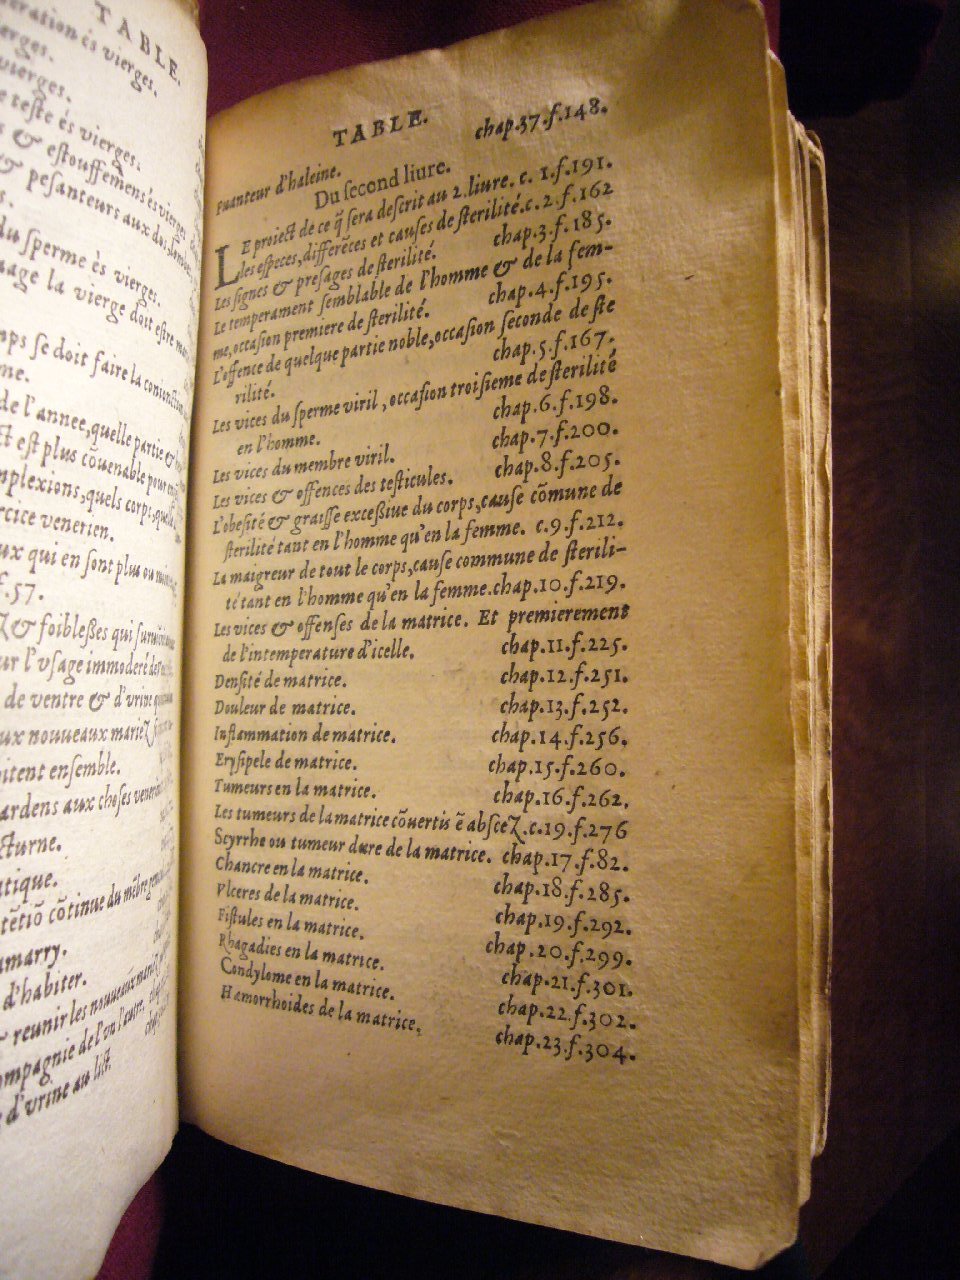 TABLE.
vierges.
vierges.
teste és vierges.
& estouffemens és vierges
& pesanteurs aux
du sperme ès vierges.
la vierge doit estre
se doit faire la coniunction
me.
de l'annee, quelle partie &
est plus cõuenable pour
complexions, quels corps,
venerien.
qui en sont plus ou
f.57.
& foiblesses qui
l'vsage immoderé
de ventre & d'vrine
aux nouueaux marieZ
ensemble.
ardens aux choses
cõtinue du mẽbre
d'habiter.
reunir les nouueaux
de l'vn l'autre,
d'vrine au lict
TABLE.
Puanteur d'haleine. chap.37.f.148.
Du second liure.
LE proiect de ce q̃ sera descrit au 2. liure. c. 1.f.191.
les especes, differẽces et causes de sterilité.c.2.f.162
Les signes & presages de sterilité. chap.3.f.185.
Le temperament semblable de l'homme & de la fem-
me, occasion premiere de sterilité. chap.4.f.195.
L'offence de quelque partie noble, occasion seconde de ste
rilité. chap.5.f.167.
Les vices du sperme viril, occasion troisieme de sterilité
en l'homme. chap.6.f.198.
Les vices du membre viril. chap.7.f.200.
Les vices & offences des testicules. chap.8.f.205.
L'obesité & graisse excessiue du corps, cause cõmune de
sterilité tant en l'homme qu'en la femme. c.9.f.212.
La maigreur de tout le corps, cause commune de sterili-
té tant en l'homme qu'en la femme.chap.10.f.219.
Les vices & offenses de la matrice. Et premierement
de l'intemperature d'icelle. chap.11.f.225.
Densité de matrice. chap.12.f.251.
Douleur de matrice. chap.13.f.252.
Inflammation de matrice. chap.14.f.256.
Erysipele de matrice. chap.15.f.260.
Tumeurs en la matrice. chap.16.f.262.
Les tumeurs de la matrice cõuertis ẽ absceZ.c.19.f.276
Scyrrhe ou tumeur dure de la matrice. chap.17.f.82.
Chancre en la matrice. chap.18.f.285.
Vlceres de la matrice. chap.19.f.292.
Fistules en la matrice. chap.20.f.299.
Rhagadies en la matrice. chap.21.f.301.
Condylome en la matrice. chap.22.f.302.
Hamorrhoides de la matrice, chap.23.f.304.